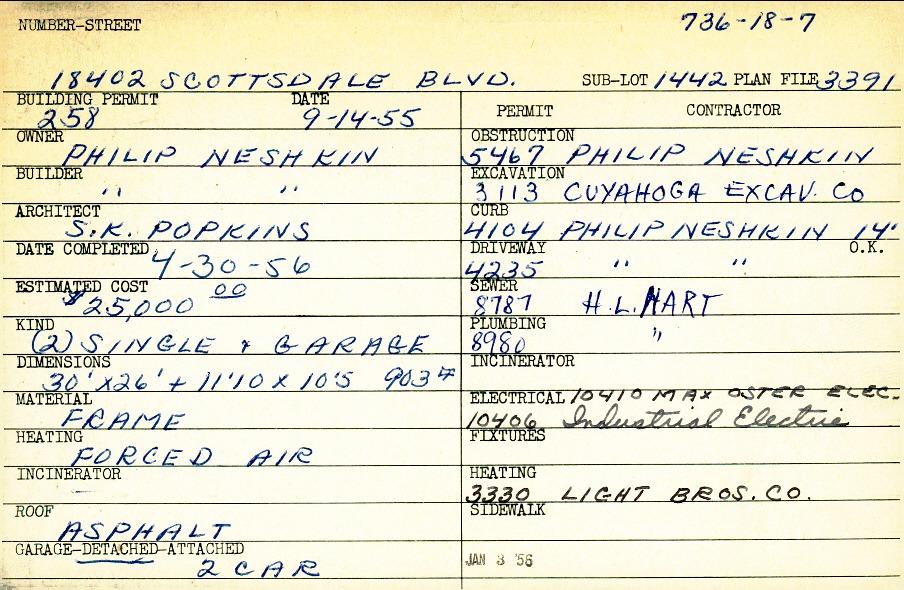 NUMBER-STREET
736-18-7
18402 SCOTTSDALE BLVD. SUB-LOT 1442 PLAN FILE 3391
BUILDING PERMIT DATE
258 9-14-55
PERMIT CONTRACTOR
OWNER
PHILIP NESHKIN
OBSTRUCTION
5467 PHILIP NESHKIN
BUILDER
" "
EXCAVATION
3113 CUYAHOGA EXCAV. CO
ARCHITECT
S.K. POPKINS
CURB
4104 PHILIP NESHKIN 14'
DATE COMPLETED
4-30-56
DRIVEWAY O.K.
4235 " "
ESTIMATED COST
$25,000 00
SEWER
8787 H.L. HART
KIND
(2) SINGLE & GARAGE
PLUMBING
8980 "
DIMENSIONS
30'X26' + 11'10 X 10'5 903#
INCINERATOR
MATERIAL
FRAME
ELECTRICAL 10410 MAX OSTER ELEC.
10406 Industrial Electric
HEATING
FORCED AIR
FIXTURES
INCINERATOR
HEATING
3330 LIGHT BROS. CO.
ROOF
ASPHALT
SIDEWALK
GARAGE-DETACHED-ATTACHED
2 CAR
JAN 3 '56